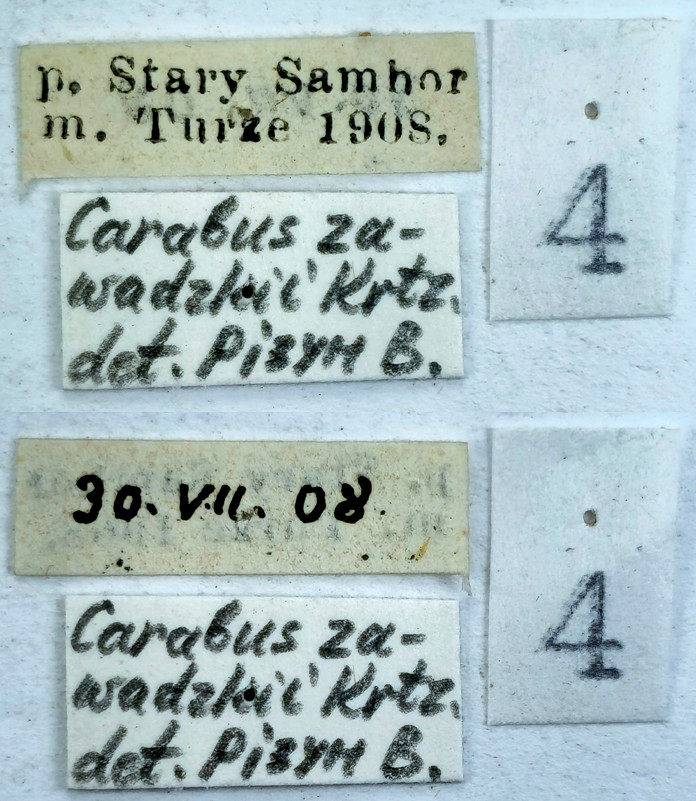 p. Stary Sambor
m. Turze 1908.
4
Carabus za-
wadzkii Krtz.
det. Різун В.
30. VII. 08
4
Carabus za-
wadzkii Krtz.
det. Різун В.